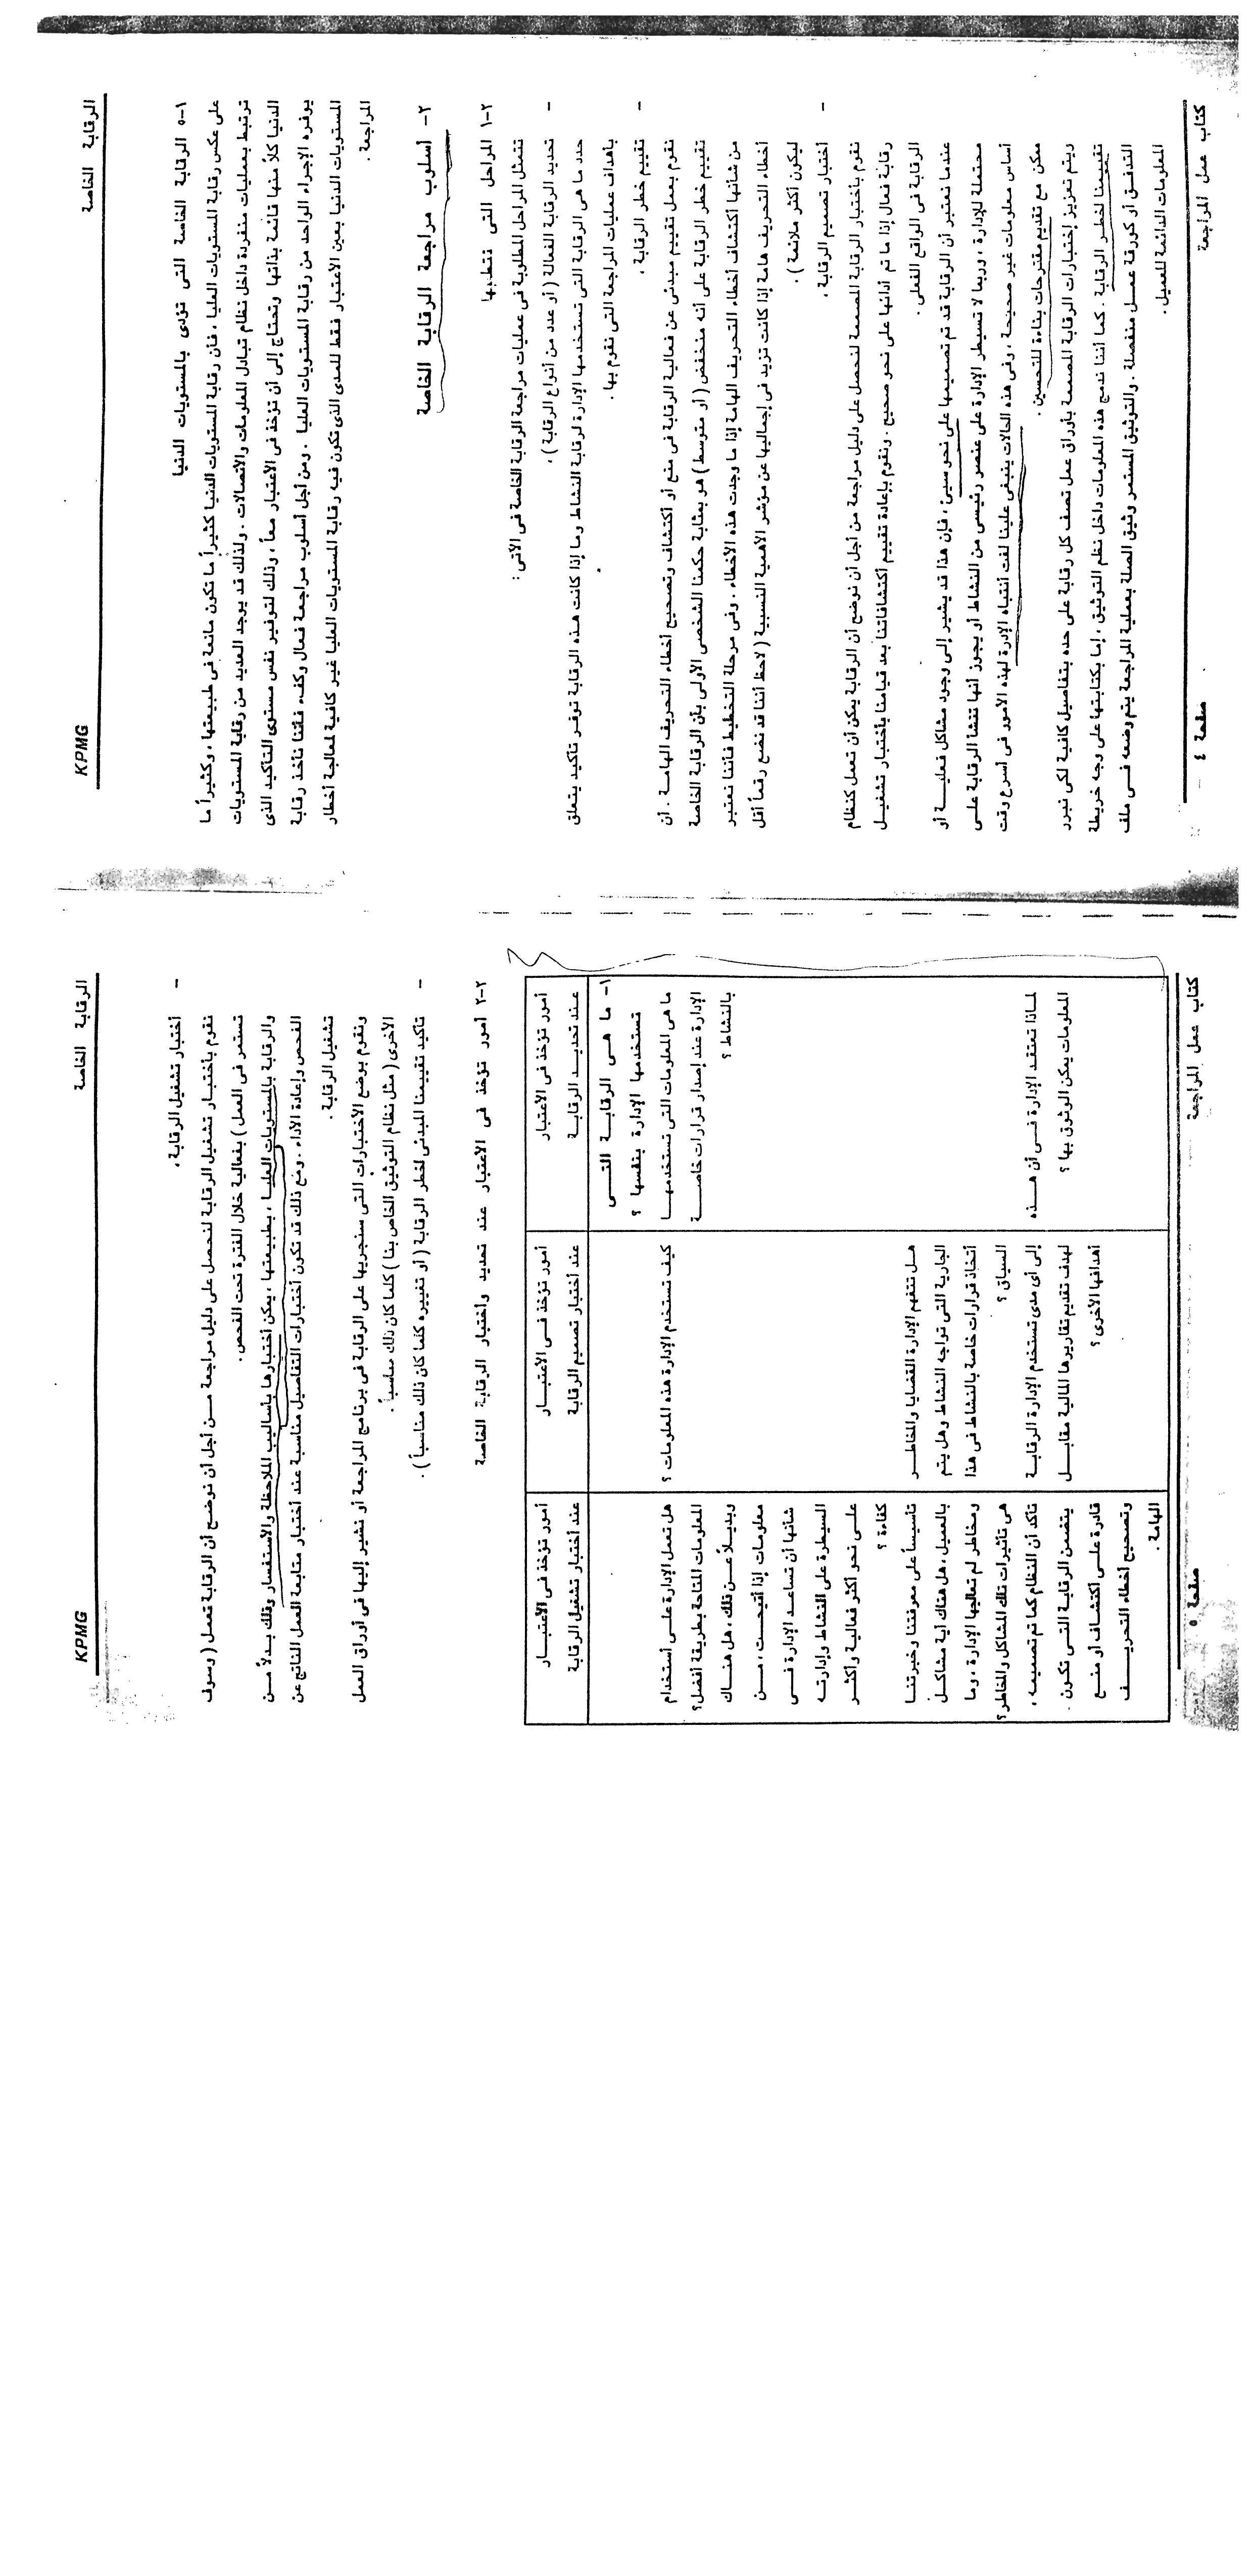 الرقابة الخاصة
KPMG
١-٥ الرقابة الخاصة التى تؤدى بالمستويات الدنيا
على عكس رقابة المستويات العليا ، فأن رقابة المستويات الدنيا كثيراً ما تكون مانعة فى طبيعتها ، وكثيراً ما
ترتبط بعمليات منفردة داخل نظام تبادل المعلومات والأتصالات . ولذلك قد يوجد العديد من رقابة المستويات
الدنيا كلاً منها قائمة بذاتها وتحتاج إلى أن تؤخذ فى الأعتبار معاً ، وذلك لتوفير نفس مستوى التأكيد الذى
يوفره الإجراء الواحد من رقابة المستويات العليا . ومن أجل أسلوب مراجعة فعال وكفء فأننا نأخذ رقابة
المستويات الدنيا بعين الأعتبار فقط للمدى الذى تكون فيه رقابة المستويات العليا غير كافية لمعالجة أخطار
المراجعة .
٢- أسلوب مراجعة الرقابة الخاصة
٢-١ المراحل التى نتطلبها
تتمثل المراحل المطلوبة فى عمليات مراجعة الرقابة الخاصة فى الآتى :
- تحديد الرقابة الفعالة ( أو عدد من أنواع الرقابة ) ،
حدد ما هى الرقابة التى تستخدمها الإدارة لرقابة النشاط وما إذا كانت هذه الرقابة توفر تأكيد يتعلق
بأهداف عمليات المراجعة التى نقوم بها .
- تقييم خطر الرقابة ،
نقوم بعمل تقييم مبدئى عن فعالية الرقابة فى منع أو أكتشاف وتصحيح أخطاء التحريف الهامة . أن
تقييم خطر الرقابة على أنه منخفض ( أو متوسط ) هو بمثابة حكمنا الشخصى الأولى بأن الرقابة الخاصة
من شأنها أكتشاف أخطاء التحريف الهامة إذا ما وجدت هذه الأخطاء . وفى مرحلة التخطيط فأننا نعتبر
أخطاء التحريف هامة إذا كانت تزيد فى إجماليها عن مؤشر الأهمية النسبية ( لاحظ أننا قد نضع رقماً أقل
ليكون أكثر ملائمة ) .
- أختبار تصميم الرقابة ،
نقوم بأختبار الرقابة المصممة لنحصل على دليل مراجعة من أجل أن نوضح أن الرقابة يمكن أن تعمل كنظام
رقابة فعال إذا ما تم أدائها على نحو صحيح . ونقوم بإعادة تقييم أكتشافاتنا بعد قيامنا بأختبار تشغيل
الرقابة فى الواقع الفعلى .
عندما نعتبر أن الرقابة قد تم تصميمها على نحو سيئ ، فإن هذا قد يشير إلى وجود مشاكل فعلية أو
محتملة للإدارة ، وربما لا تسيطر الإدارة على عنصر رئيسى من النشاط أو يجوز أنها تنشأ الرقابة على
أساس معلومات غير صحيحة ، وفى هذه الحالات ينبغى علينا لفت أنتباه الإدارة لهذه الأمور فى أسرع وقت
ممكن مع تقديم مقترحات بناءة للتحسين .
ويتم تعزيز إختبارات الرقابة المصممة بأوراق عمل تصف كل رقابة على حده بتفاصيل كافية لكى نبرر
تقييمنا لخطر الرقابة . كما أننا ندمج هذه المعلومات داخل نظم التوثيق ، إما بكتابتها على وجه خريطة
التدفق أو كورقة عمل منفصلة . والتوثيق المستمر وثيق الصلة بعملية المراجعة يتم وضعه فى ملف
المعلومات الدائمة للعميل .
كتاب عمل المراجعة
صفحة ٤
الرقابة الخاصة
KPMG
- أختبار تشغيل الرقابة ،
نقوم بأختبار تشغيل الرقابة لنحصل على دليل مراجعة من أجل أن نوضح أن الرقابة تعمل ( وسوف
تستمر فى العمل ) بفعالية خلال الفترة تحت الفحص .
والرقابة بالمستويات العليا ، بطبيعتها ، يمكن أختبارها بأساليب الملاحظة والأستفسار وذلك بدلاً من
الفحص وإعادة الأداء . ومع ذلك قد تكون أختبارات التفاصيل مناسبة عند أختبار متابعة العمل الناتج عن
تشغيل الرقابة .
ونقوم بوضع الأختبارات التى سنجريها على الرقابة فى برنامج المراجعة أو نشير إليها فى أوراق العمل
الأخرى ( مثل نظام التوثيق الخاص بنا ) كلما كان ذلك مناسباً .
- تأكيد تقييمنا المبدئى لخطر الرقابة ( أو تغييره كلما كان ذلك مناسباً ) .
٢-٢ أمور تؤخذ فى الأعتبار عند تحديد وأختبار الرقابة الخاصة
أمور تؤخذ فى الأعتبار
عند تحديد الرقابة
أمور تؤخذ فى الأعتبار
عند أختبار تصميم الرقابة
أمور تؤخذ فى الأعتبار
عند أختبار تشغيل الرقابة
١- ما هى الرقابة التى
تستخدمها الإدارة بنفسها ؟
ما هى المعلومات التى تستخدمها
الإدارة عند إصدار قرارات خاصة
بالنشاط ؟
كيف تستخدم الإدارة هذه المعلومات ؟
هل تعمل الإدارة على أستخدام
المعلومات المتاحة بطريقة أفضل؟
وبديلاً عن ذلك ، هل هناك
معلومات إذا أتيحت ، من
شأنها أن تساعد الإدارة فى
السيطرة على النشاط وإدارته
على نحو أكثر فعالية وأكثر
كفاءة ؟
هل تتفهم الإدارة القضايا والمخاطر
الجارية التى تواجه النشاط وهل يتم
أتخاذ قرارات خاصة بالنشاط فى هذا
السياق ؟
تأسيساً على معرفتنا وخبرتنا
بالعميل ، هل هناك أية مشاكل
ومخاطر لم تعالجها الإدارة ، وما
هى تأثيرات تلك المشاكل والمخاطر؟
لماذا تعتقد الإدارة فى أن هذه
المعلومات يمكن الوثوق بها ؟
إلى أى مدى تستخدم الإدارة الرقابة
لهدف تقديم تقاريرها المالية مقابل
أهدافها الأخرى ؟
تأكد أن النظام كما تم تصميمه ،
يتضمن الرقابة التى تكون
قادرة على أكتشاف أو منع
وتصحيح أخطاء التحريف
الهامة .
كتاب عمل المراجعة
صفحة ٥